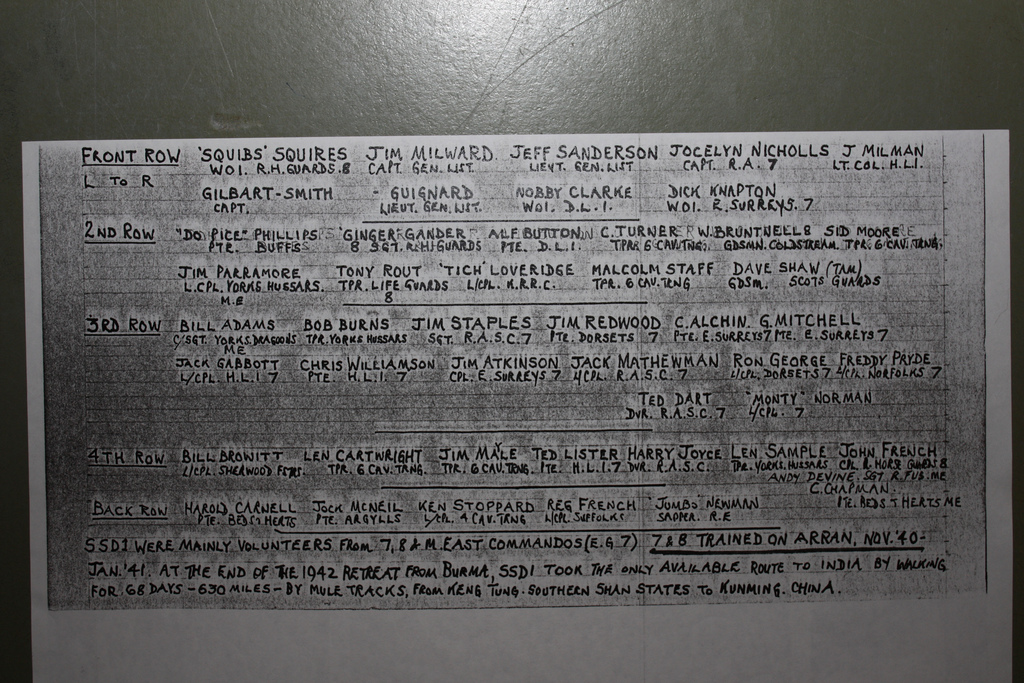 FRONT ROW 'SQUIBS' SQUIRES JIM MILWARD. JEFF SANDERSON JOCELYN NICHOLLS J MILMAN
WO1. R.H.GUARDS.8 CAPT. GEN. LIST. LIEUT. GEN. LIST. CAPT. R.A. 7 LT. COL. H.L.I.
L TO R
GILBART-SMITH - GUIGNARD NOBBY CLARKE DICK KNAPTON
CAPT. LIEUT. GEN. LIST. WO1. D.L.I. WO1. E. SURREYS. 7
2ND ROW "DO PICE" PHILLIPS "GINGER" GANDER ALF. BUTTON C. TURNER W. BRUNTNELL SID MOORE
PTE. BUFFS 8 SGT. R.H. GUARDS PTE. D.L.I. TPR. 6 CAV. TNG. GDSMN. COLDSTREAM. TPR. 6 CAV. TRNG.
JIM PARRAMORE TONY ROUT 'TICH' LOVERIDGE MALCOLM STAFF DAVE SHAW (TAM)
L.CPL. YORKS HUSSARS. TPR. LIFE GUARDS L/CPL. K.R.R.C. TPR. 6 CAV. TRNG GDSM. SCOTS GUARDS
M.E 8
3RD ROW BILL ADAMS BOB BURNS JIM STAPLES JIM REDWOOD C. ALCHIN. G. MITCHELL
C/SGT. YORKS. DRAGOONS TPR. YORKS HUSSARS SGT. R.A.S.C. 7 PTE. DORSETS 7 PTE. E. SURREYS 7 PTE. E. SURREYS 7
ME
JACK GABBOTT CHRIS WILLIAMSON JIM ATKINSON JACK MATHEWMAN RON GEORGE FREDDY PRYDE
L/CPL. H.L.I 7 PTE. H.L.I. 7 CPL. E. SURREYS 7 L/CPL. R.A.S.C. 7 L/CPL. DORSETS 7 L/CPL. NORFOLKS 7
TED DART "MONTY" NORMAN
DVR. R.A.S.C. 7 L/CPL. 7
4TH ROW BILL BROWITT LEN CARTWRIGHT JIM MAYLE TED LISTER HARRY JOYCE LEN. SAMPLE JOHN FRENCH
L/CPL SHERWOOD FSTRS. TPR. 6 CAV. TRNG. TPR. 6 CAV. TRNG. PTE. H.L.I. 7 DVR. R.A.S.C. TPR. YORKS. HUSSARS CPL R. HORSE GUARDS 8
ANDY DEVINE. SGT R. FUS. ME
C. CHAPMAN.
BACK ROW HAROLD CARNELL JOCK MCNEIL KEN STOPPARD REG FRENCH 'JUMBO' NEWMAN PTE. BEDS & HERTS ME
PTE. BEDS & HERTS PTE. ARGYLLS L/CPL. 4 CAV. TRNG L/CPL. SUFFOLKS SAPPER. R.E
SSD1 WERE MAINLY VOLUNTEERS FROM 7, 8 & M. EAST COMMANDOS (E.G 7) 7 & 8 TRAINED ON ARRAN, NOV. '40-
JAN. '41. AT THE END OF THE 1942 RETREAT FROM BURMA, SSD1 TOOK THE ONLY AVAILABLE ROUTE TO INDIA BY WALKING
FOR 68 DAYS - 630 MILES - BY MULE TRACKS, FROM KENG TUNG. SOUTHERN SHAN STATES TO KUNMING. CHINA.